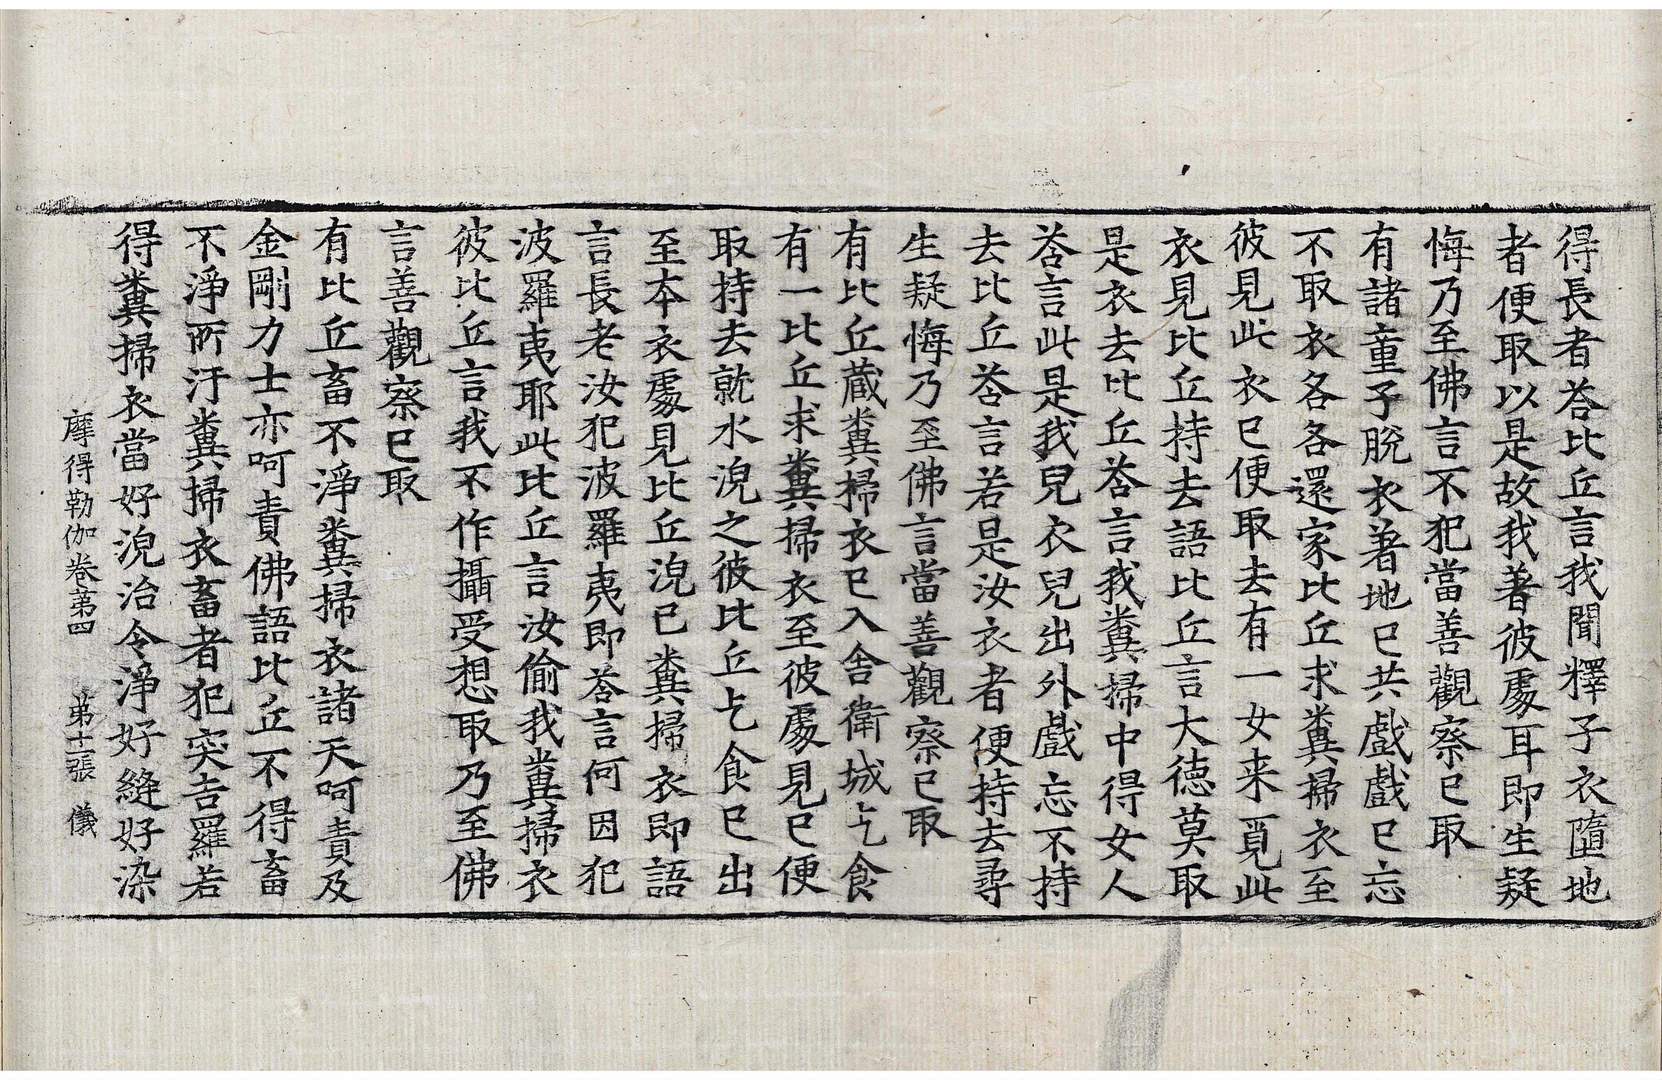 得長者荅比丘言我聞釋子衣墮地
者便取以是故我著彼處耳即生疑
悔乃至佛言不犯當善觀察已取
有諸童子脫衣著地已共戲戲已忘
不取衣各各還家比丘求糞掃衣至
彼見此衣已便取去有一女来覓此
衣見比丘持去語比丘言大德莫取
是衣去比丘荅言我糞掃中得女人
荅言此是我兒衣兒出外戲忘不持
去比丘荅言若是汝衣者便持去尋
生疑悔乃至佛言當善觀察已取
有比丘蔵糞掃衣已入舍衛城乞食
有一比丘求糞掃衣至彼處見已便
取持去就水浣之彼比丘乞食已出
至本衣處見比丘浣已糞掃衣即語
言長老汝犯波羅夷即荅言何因犯
波羅夷耶此比丘言汝偷我糞掃衣
彼比丘言我不作攝受想取乃至佛
言善觀察已取
有比丘畜不淨糞掃衣諸天呵責及
金剛力士亦呵責佛語比丘不得畜
不淨所汙糞掃衣畜者犯突吉羅若
得糞掃衣當好浣治令淨好縫好染
摩得勒伽卷第四　第十一張　儀